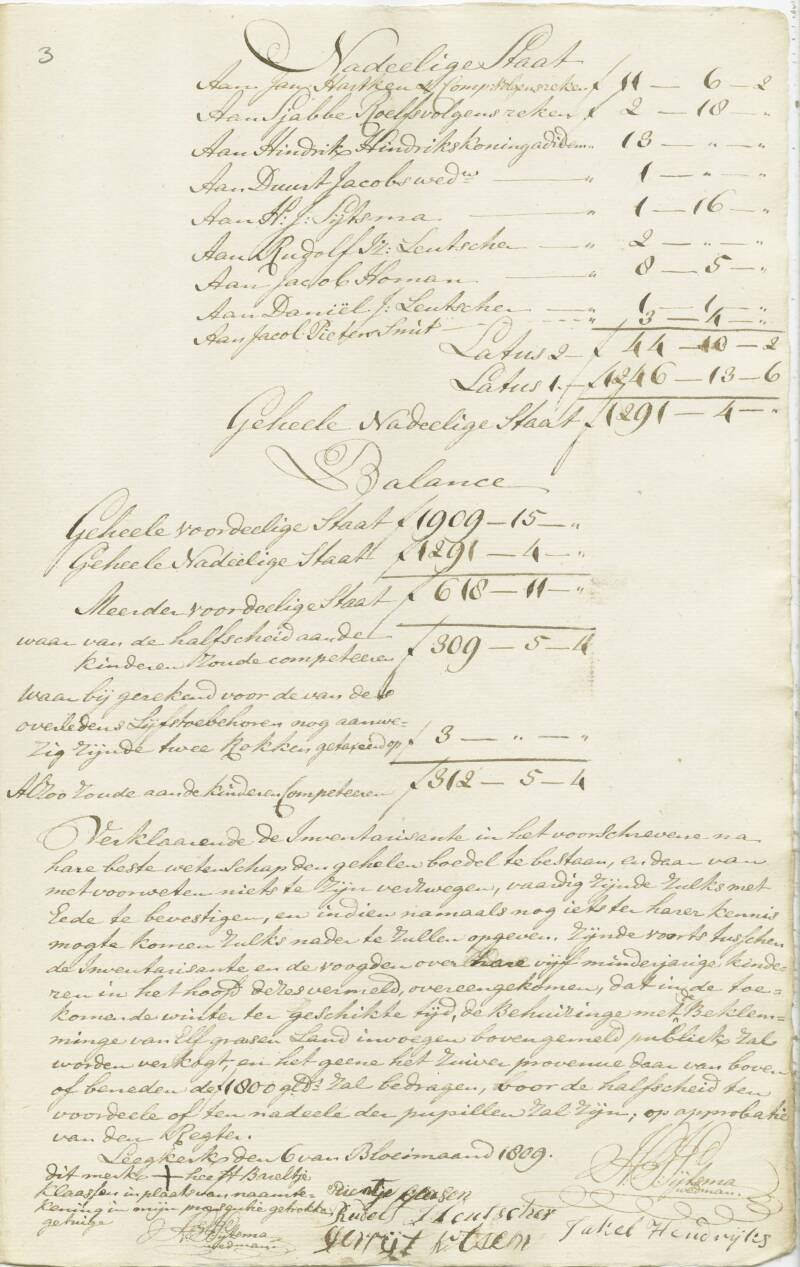 3
Nadeelige Staat
Aan Jan Hartken & Comp volgens reken f 11 — 6 — 2
Aan Sjabbe Roelfs volgens reken f 2 — 18 — „
Aan Hindrik Hindriks Koning adidem „ 13 — „ — „
Aan Duurt Jacobs wedw — „ 1 — „ — „
Aan H: J: Sijtsma — „ 1 — 16 — „
Aan Rudolf Iz: Leutscher — „ 2 — „ — „
Aan Jacob Homan — „ 8 — 5 — „
Aan Daniël J: Leutscher — „ 1 — 1 — „
Aan Jacob Pieters Smit — „ 3 — 4 — „
Latus 2 — f 44 — 10 — 2
Latus 1 — f 1246 — 13 — 6
Geheele Nadeelige Staat f 1291 — 4 — „
Balance
Geheele voordeelige Staat f 1909 — 15 — „
Geheele Nadeelige Staat f 1291 — 4 — „
Meerder voordeelige Staat f 618 — 11 — „
waar van de halfscheid aan de
kinderen zoude competeeren f 309 — 5 — 4
waar bij gerekend voor de van de
overledens Lijfstoebehoren nog aanwe-
zig zijnde twee Rokken, getaxeerd op f 3 — „ — „
Alzoo zoude aan de kinderen Competeeren f 312 — 5 — 4
Verklaarende de Inventarisante in het voorschrevene na
hare beste wetenschap den gehelen boedel te bestaan, en daar van
met voorweten niets te zijn verzwegen, vaardig zijnde zulks met
Eede te bevestigen, en indien namaals nog iets ter harer kennis
mogte komen zulks nader te zullen opgeven. Zijnde voorts tusschen
de Inventarisante en de voogden over hare vijf minderjarige kinde-
ren in het hoofd dezes vermeld, overeengekomen, dat in de toe-
komende winter ter geschikte tijd, de Behuizinge met de Beklem-
minge van Elf grasen Land invoegen bovengemeld publiek zal
worden verkogt, en het geene het zuiver provenue daar van boven
of beneden de 1800 glds zal bedragen, voor de halfscheid ten
voordeele of ten nadeele der pupillen zal zijn, op approbatie
van den Regter.
Leegkerk den 6 van Bloeimaand 1809.
dit merk + heeft Bareltje
Klaassen in plaats van naamte-
kening in mijn presentie getrokken
getuige
Sijtsma
wedman
Rudolf Leutscher
Gerrijt
Jakel Hendrijks
Sijtsma
wedman.